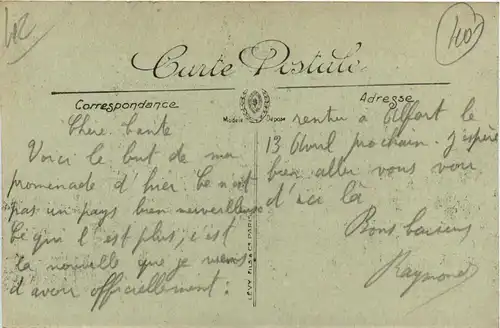 402
40
Carte Postale
Correspondance
Modèle Déposé
Adresse
Chère tante
Voici le but de ma
promenade d'hier Ce n'est
pas un pays bien merveilleux
Ce qui l'est plus, c'est
la nouvelle que je viens
d'avoir officiellement :
LÉVY FILS & Cie PARIS
rentrer à Alfort le
13 Avril prochain. J'espère
bien aller vous voir
d'ici là
Bons baisers
Raymond